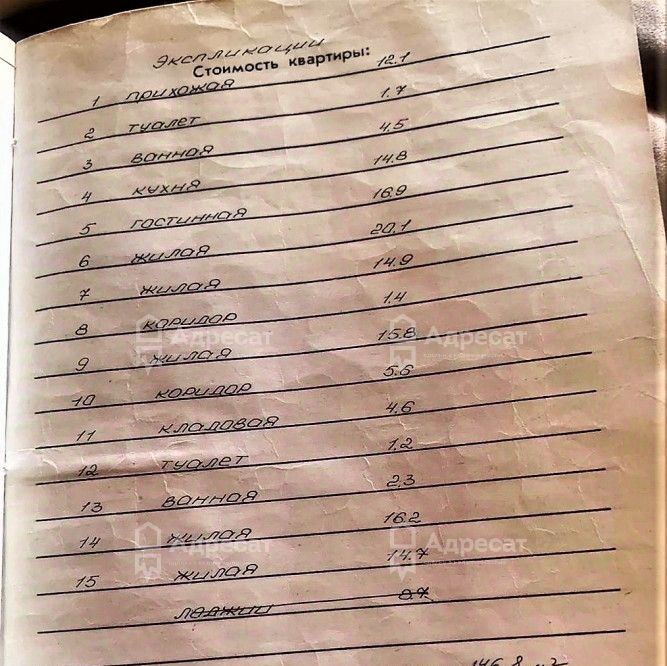 Экспликации
Стоимость квартиры:
1 прихожая 12.1
2 туалет 1.7
3 ванная 4.5
4 кухня 14.8
5 гостинная 16.9
6 жилая 20.1
7 жилая 14.9
8 коридор 1.4
9 жилая 15.8
10 коридор 5.6
11 кладовая 4.6
12 туалет 1.2
13 ванная 2.3
14 жилая 16.2
15 жилая 14.7
лоджии 8.7
146.8 м2
Адресат
Адресат
Адресат
Адресат